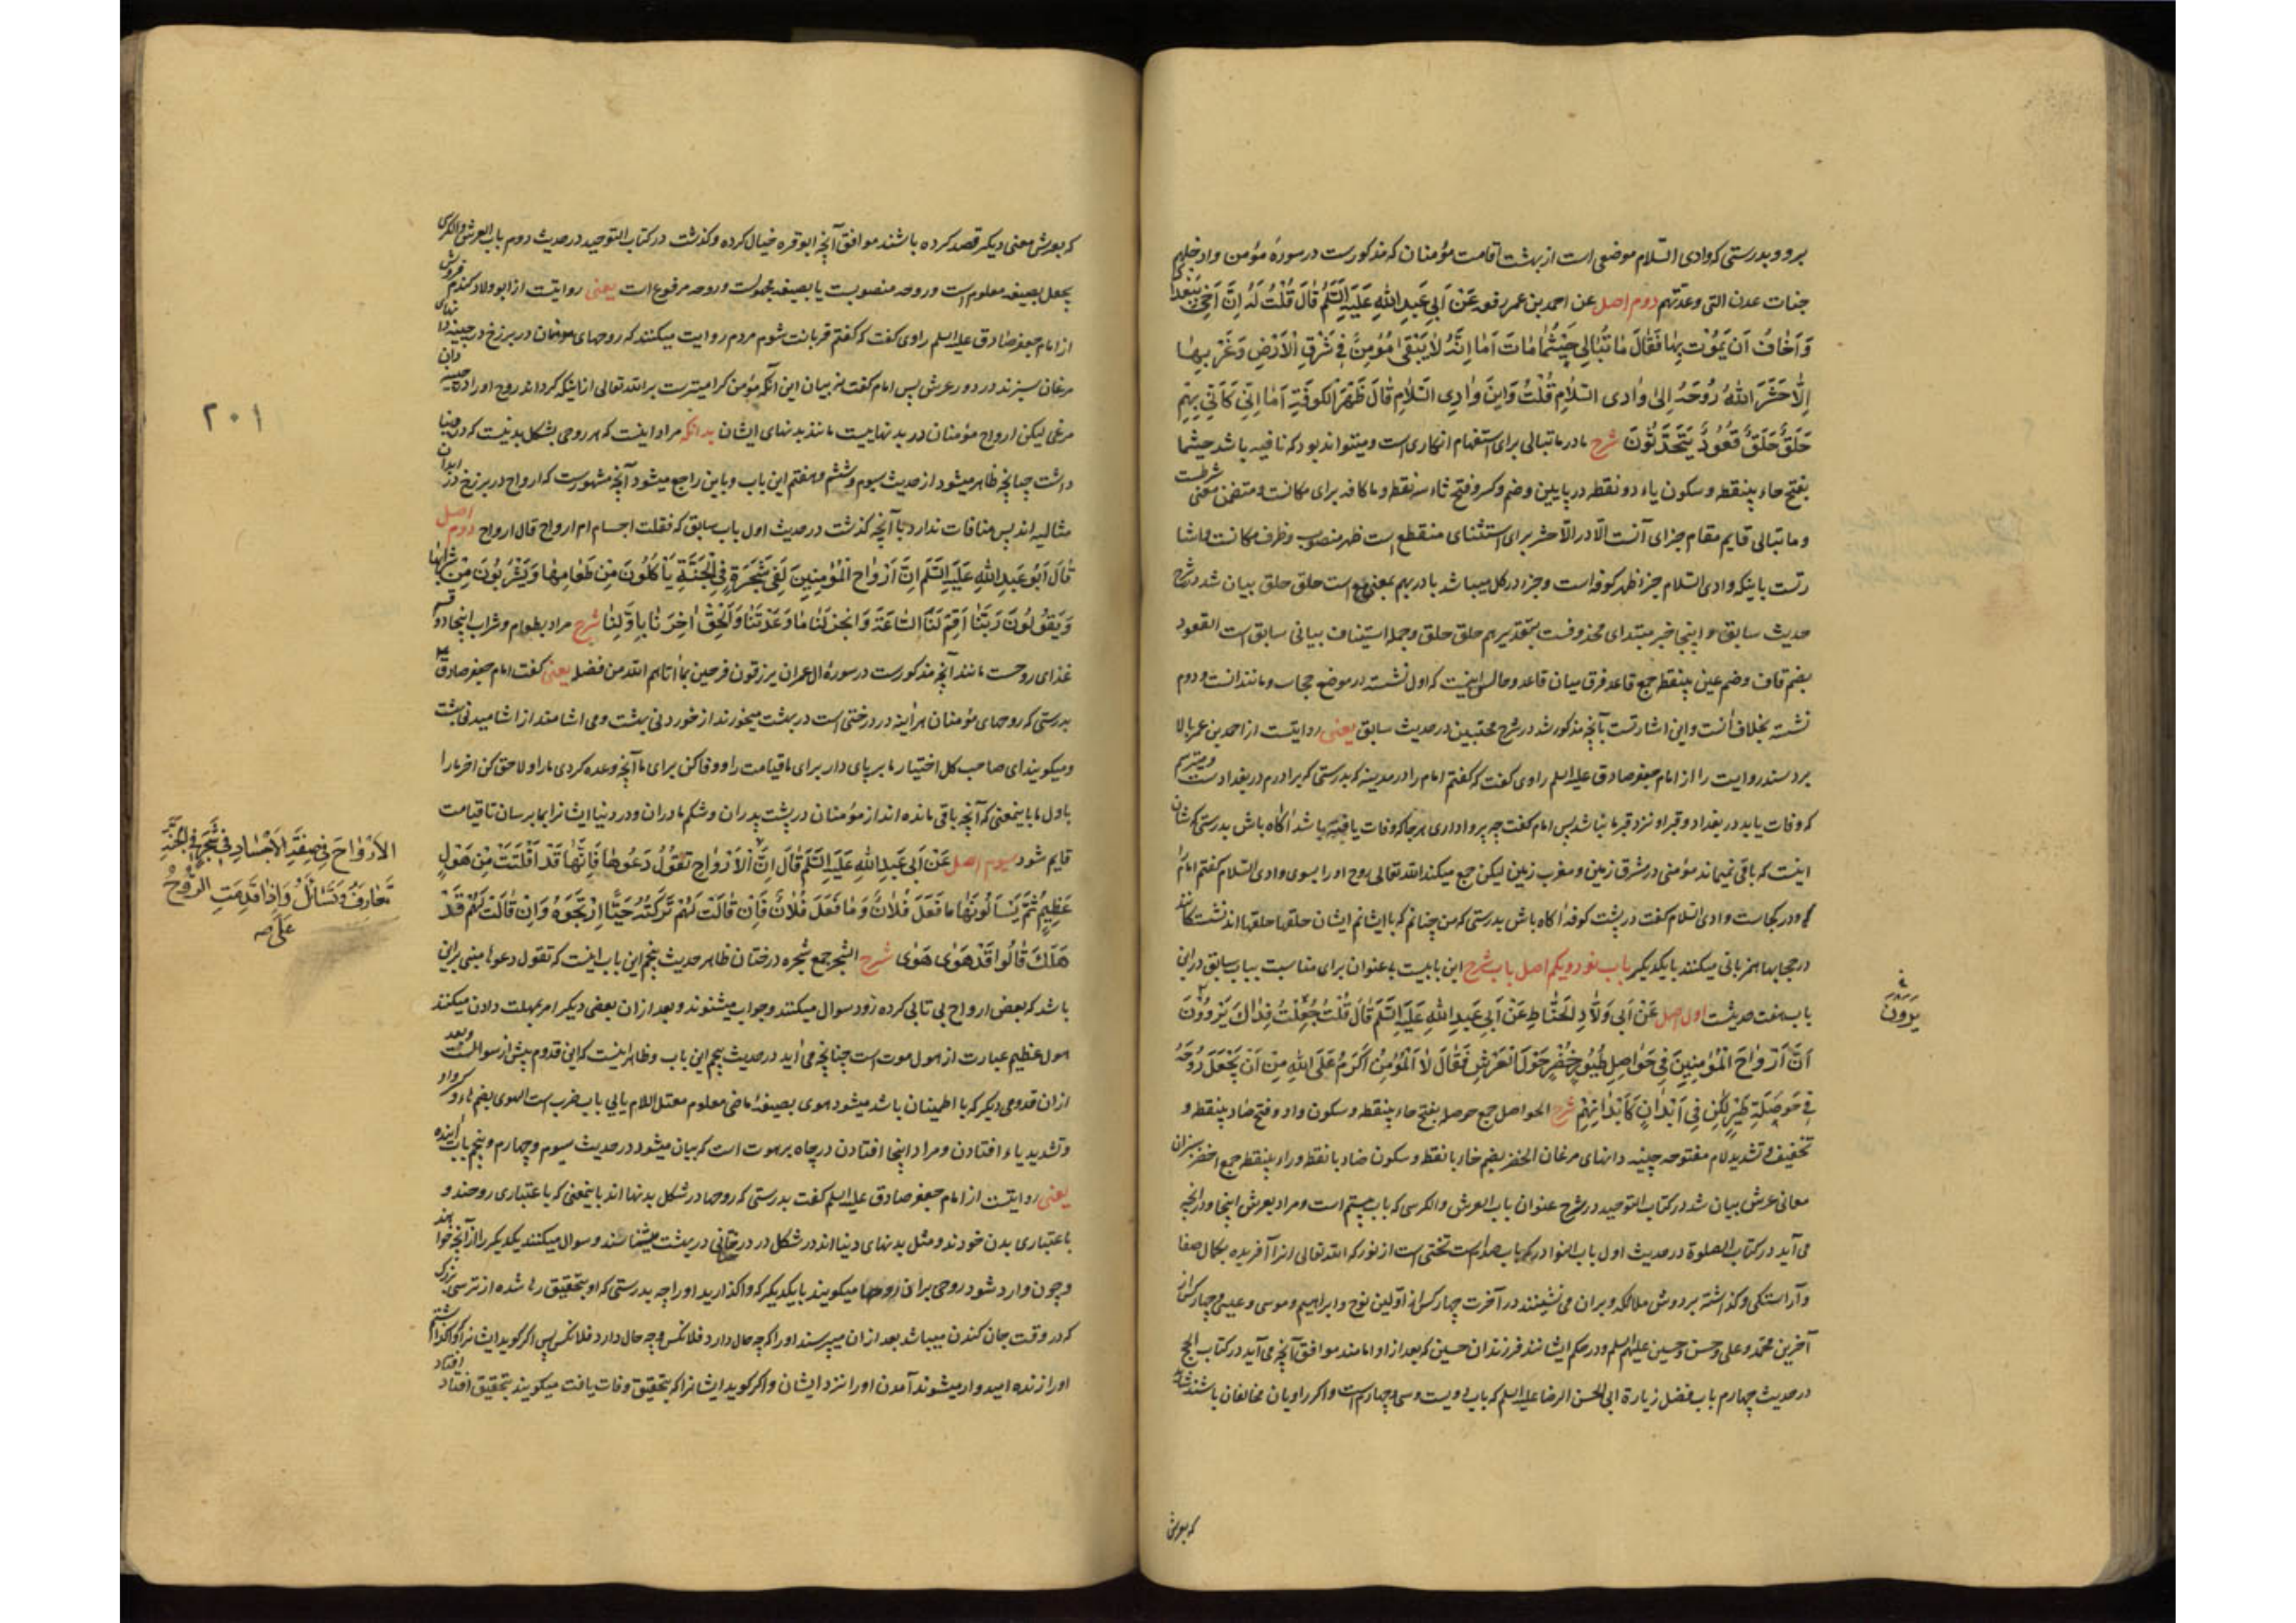 برو و بدرستی که وادی السّلام موضعی است از بهشت اقامت مؤمنان که مذکورست در سورهٔ مؤمن وادخلهم
جنات عدن التی وعدتهم دوم اصل عن احمد بن عمر رفعه عَنْ اَبی عَبدِ اللهِ عَلَیهِ السَّلَمُ قالَ قُلْتُ لَهُ اِنَّ اَخی بِبَغْدادَ
وَ اَخافُ اَن یَمُوْتَ بِها فَقالَ ما تُبالی حَیْثُما ماتَ اَما اِنَّهُ لا یَبْقی مُؤمِنٌ فی شَرْقِ الْاَرْضِ وَ غَرْبِها
اِلّا حَشَرَ اللهُ رُوْحَهُ اِلی وادی السَّلامِ قُلْتُ وَ اَیْنَ وادِی السَّلامِ قالَ ظَهْرُ الْکوفَةِ اَما اِنّی کَاَنّی بِهِمْ
حَلَقٌ حَلَقٌ قُعُودٌ یَتَحَدَّثُونَ شرح ما در ما تبالی برای استفهام انکاری است و میتواند بود که نافیه باشد حیثما
بفتح حاء بینقطه و سکون یاء دو نقطه در پایین و ضم و کسر و فتح ثاء سه نقطه و ما کافه برای مکانست و متضمن معنی شرطست
و ما تبالی قایم مقام جزای آنست الّا در الّا حشر برای استثنای منقطع است ظهر منصوب و ظرف مکانست
باینکه وادی السّلام جزء ظهر کوفه است و جزء در کل میباشد با در بهم بمعنی مع است حلق حلق بیان شد در شرح
حدیث سابق و اینجا خبر مبتدای محذوفست بتقدیر هم حلق حلق و جمله استیناف بیانی سابق است القعود
بضم قاف و ضم عین بینقطه جمع قاعد فرق میان قاعد و جالس اینست که اول نشسته در موضع حجاب و مانند آنست و دوم
نشسته بخلاف آنست و این اشارتست بآنچه مذکور شد در شرح محتبین در حدیث سابق یعنی روایتست از احمد بن عمر بالا
برد سند روایت را از امام جعفر صادق علیه السلم راوی گفت که گفتم امام را در مدینه که بدرستی که برادرم در بغداد است و میترسم
که وفات یابد در بغداد و قبر او نزد قبر ما نباشد پس امام گفت چه پروا داری هرجا که وفات یافته باشد آگاه باش بدرستی که شان
اینست که باقی نمیماند مؤمنی در مشرق زمین و مغرب زمین لیکن جمع میکند الله تعالی روح او را بسوی وادی السّلام گفتم امام را
که و در کجاست وادی السلام گفت در پشت کوفه آگاه باش بدرستی که من چنانم که با ایشانم ایشان حلقها حلقها اند نشستگانند
در حجابها همزبانی میکنند با یکدیگر باب نود و یکم اصل باب شرح این بابیست بی عنوان برای مناسبت بباب سابق در این
باب هفت حدیثست اول اصل عَنْ اَبی وَلّادٍ الْحَنّاطِ عَنْ اَبی عَبدِ اللهِ عَلَیهِ السَّلَمُ قالَ قُلْتُ جُعِلْتُ فِداکَ یَرْوُوْنَ
اَنَّ اَرْواحَ الْمُؤمِنِینَ فی حَواصِلِ طُیُورٍ خُضْرٍ حَوْلَ الْعَرْشِ فَقالَ لا اَلْمُؤمِنُ اَکْرَمُ عَلَی اللهِ مِنْ اَنْ یَجْعَلَ رُوْحَهُ
فی حَوْصَلَةِ طَیْرٍ لکِنْ فی اَبْدانٍ کَاَبْدانِهِمْ شرح الحواصل جمع حوصله بفتح حاء بینقطه و سکون واو و فتح صاد بینقطه و
تخفیف و تشدید لام مفتوحه چینه دانهای مرغان الخضر بضم خاء با نقطه و سکون ضاد با نقطه و راء بینقطه جمع اخضر سبزان
معانی عرش بیان شد در کتاب التوحید در شرح عنوان باب العرش والکرسی که باب بیستم است و مراد بعرش اینجا و در آنچه
می آید در کتاب الصلوة در حدیث اول باب النوادر که باب صدم است تختی است از نور که الله تعالی آنرا آفریده بکمال صفا
و آراستگی و گذاشته بر دوش ملائکه و بر آن می نشینند در آخرت چهار کس از اوّلین نوح و ابراهیم و موسی و عیسی و چهار کس از
آخرین محمد و علی و حسن و حسین علیهم السلم و در حکم ایشانند فرزندان حسین که بعد از او امامند موافق آنچه می آید در کتاب الحج
در حدیث چهارم باب فضل زیارة ابی الحسن الرضا علیه السلم که باب دویست و سی و چهارم است و اگر راویان مخالفان باشند شاید
که بعرش
یَرْوُونَ
که بعرش معنی دیگر قصد کرده باشند موافق آنچه ابو قره خیال کرده و گذشت در کتاب التوحید در حدیث دوم باب العرش والکرسی
یجعل بصیغه معلوم است و روحه منصوبست یا بصیغه مجهولست و روحه مرفوع است یعنی روایتست از ابو ولاد گندم فروش
از امام جعفر صادق علیه السلم راوی گفت که گفتم قربانت شوم مردم روایت میکنند که روحهای مومنان در برزخ در چینه دانهای
مرغان سبزند در دور عرش پس امام گفت نه بیان این آنکه مؤمن گرامیترست بر الله تعالی از اینکه گرداند روح او را در چینه دان
مرغی لیکن ارواح مؤمنان در بدنهاییست مانند بدنهای ایشان بدانکه مراد اینست که هر روحی بشکل بدنیست که در دنیا
داشت چنانچه ظاهر میشود از حدیث سیوم و ششم و هفتم این باب و باین راجع میشود آنچه مشهورست که ارواح در برزخ در ابدان
مثالیه اند پس منافات ندارد با آنچه گذشت در حدیث اول باب سابق که فقلت اجسام ام ارواح قال ارواح دوم اصل
قالَ اَبُو عَبدِ اللهِ عَلَیهِ السَّلَمُ اِنَّ اَرْواحَ الْمُؤمِنِینَ لَفی شَجَرَةٍ فی الْجَنَّةِ یَأکُلُونَ مِنْ طَعامِها وَ یَشْرَبُونَ مِنْ شَرابِها
وَ یَقُولُونَ رَبَّنا اَقِمْ لَنَا السّاعَةَ وَ اَنجِزْ لَنا ما وَعَدْتَنا وَ اَلْحِقْ آخِرَنا بِاَوَّلِنا شرح مراد بطعام و شراب اینجا دو قسم
غذای روحست مانند آنچه مذکورست در سورهٔ ال عمران یرزقون فرحین بما آتاهم الله من فضله یعنی گفت امام جعفر صادق ع
بدرستی که روحهای مؤمنان هر آینه در درختی است در بهشت میخورند از خوردنی بهشت و می آشامند از آشامیدنی بهشت
و میگویند ای صاحب کل اختیار ما بر پای دار برای ما قیامت را و وفا کن برای ما آنچه وعده کردی ما را و لاحق کن آخر ما را
باول ما باینمعنی که آنچه باقی مانده اند از مؤمنان در پشت پدران و شکم مادران و در دنیا ایشانرا بما برسان تا قیامت
قایم شود سیوم اصل عَنْ اَبی عَبدِ اللهِ عَلَیهِ السَّلَمُ قالَ اِنَّ الْاَرْواحِ تَقُوْلُ دَعُوها فَاِنَّها قَدْ اَفْلَتَتْ مِنْ هَوْلٍ
عَظِیْمٍ ثُمَّ یَسْاَلُونَها ما فَعَلَ فُلانٌ وَ ما فَعَلَ فُلانٌ فَاِنْ قالَتْ لَهُمْ تَرَکْتُهُ حَیًّا اِرْتَجَوْهُ وَ اِنْ قالَتْ لَهُمْ قَدْ
هَلَکَ قالُوا قَدْ هَوی هَوی شرح الشجر جمع شجره درختان ظاهر حدیث پنجم این باب اینست که تقول دعوها مبنی بر این
باشد که بعض ارواح بی تابی کرده زود سوال میکنند و جواب میشنوند و بعد از آن بعضی دیگر امر بمهلت دادن میکنند
هول عظیم عبارت از هول موت است چنانچه می آید در حدیث پنجم این باب و ظاهر اینست که این قدوم پیش از سوالست و بعد
از آن قدومی دیگر که با اطمینان باشد میشود هوی بصیغهٔ ماضی معلوم معتل اللام یایی باب ضرب است الهوی بضم هاء و کسر واو
و تشدید یاء افتادن و مراد اینجا افتادن در چاه برهوت است که بیان میشود در حدیث سیوم و چهارم و پنجم باب آینده
یعنی روایتست از امام جعفر صادق علیه السلم گفت بدرستی که روحها در شکل بدنها اند باینمعنی که باعتباری روحند و
باعتباری بدن خودند و مثل بدنهای دنیا اند در شکل در درختانی در بهشت میشناسند و سوال میکنند یکدیگر را از آنچه خواهند
و چون وارد شود روحی بر آن روحها میگویند با یکدیگر که واگذارید او را چه بدرستی که او بتحقیق رها شده از ترسی بزرگ
که در وقت جان کندن میباشد بعد از آن میپرسند او را که چه حال دارد فلانکس و چه حال دارد فلانکس پس اگر گوید ایشانرا که واگذاشتم
او را زنده امیدوار میشوند آمدن او را نزد ایشان و اگر گوید ایشانرا که بتحقیق وفات یافت میگویند بتحقیق افتاد افتاد
۲۰۱
الاَرْواحَ فی صِفَةِ الاَجْسادِ فی شَجَرٍ فی الْجَنَّةِ
تَعارَفُ وَ تَسائَلُ وَ اِذا قَدِمَتِ الرُّوْحُ
عَلَی صه